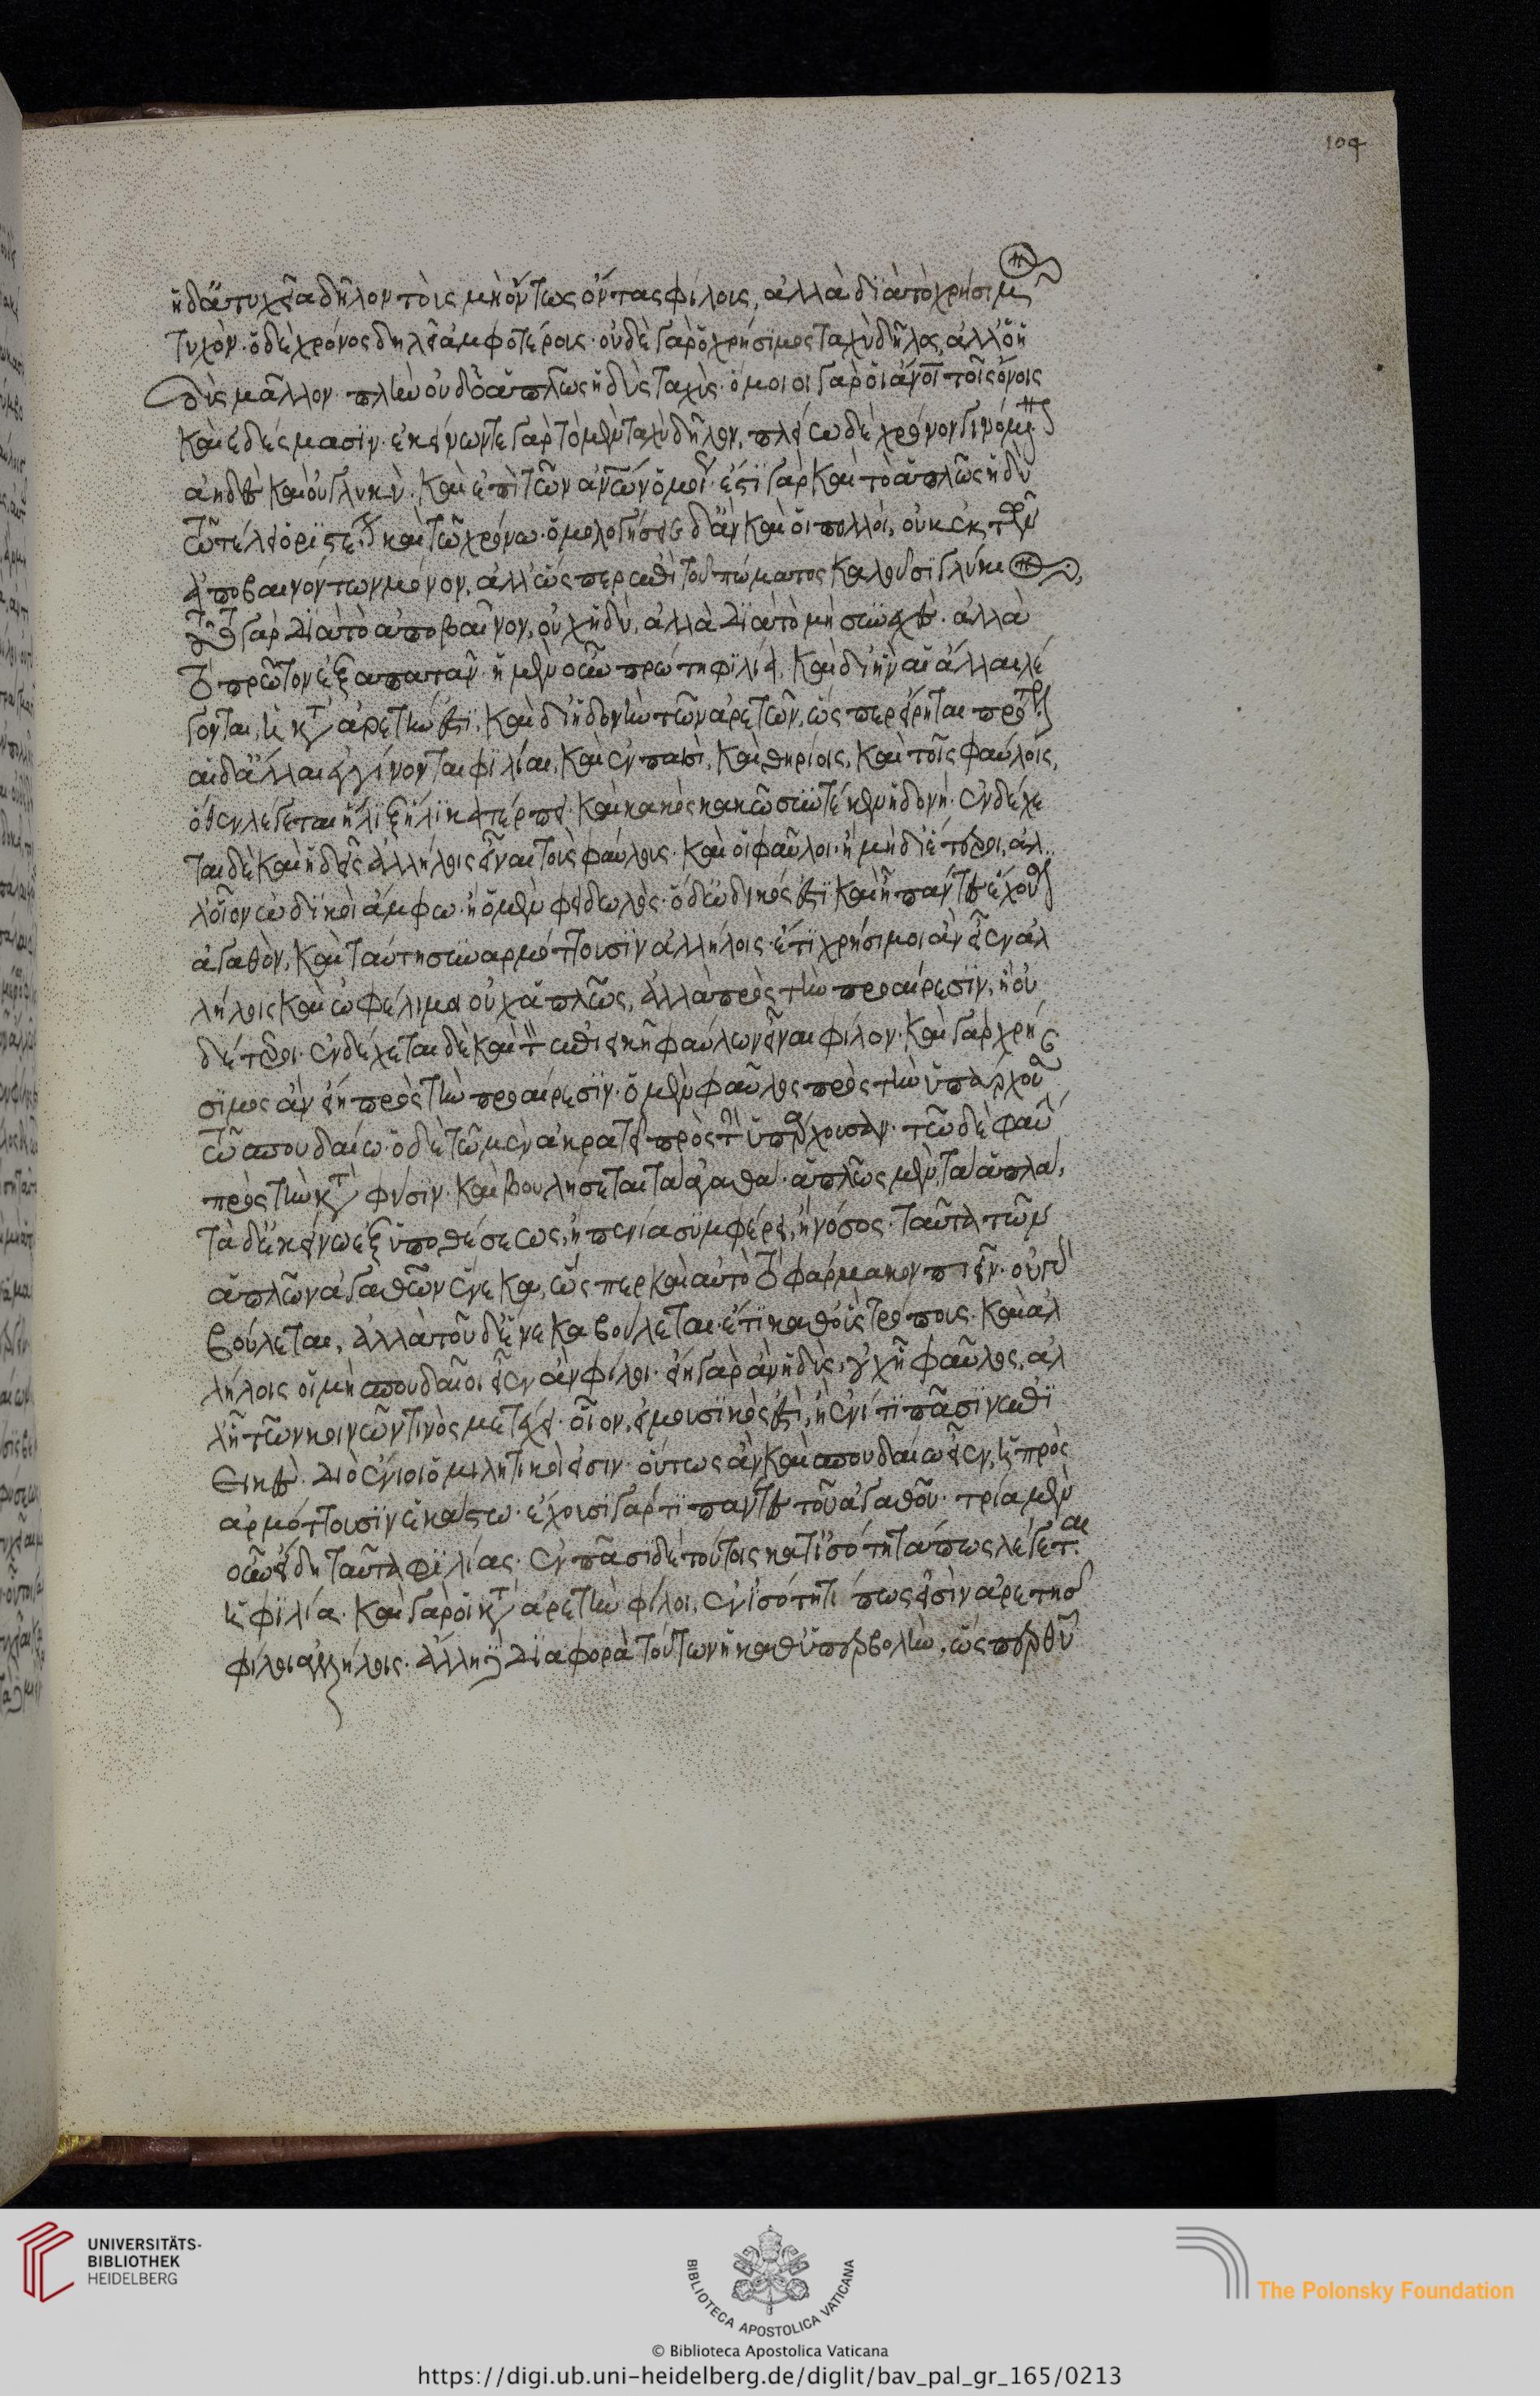 104
ἡ δἀτυχία δηλοῖ τοὺς μὴ ὄντως ὄντας φίλους, ἀλλὰ διὰ τὸ χρήσιμον
τυχὸν· ὁ δὲ χρόνος δηλοῖ ἀμφοτέρους· οὐδὲ γὰρ ὁ χρήσιμος ταχὺ δῆλος, ἀλλ' ὁ ἡ
δὺς μᾶλλον· πλὴν οὐδ' ὁ ἁπλῶς ἡδὺς ταχὺς· ὅμοιοι γὰρ οἱ ἄνοι τοῖς οἴνοις
καὶ ἐδέσμασιν· ἐκείνων τε γὰρ τὸ μὲν ταχὺ δῆλον, πλείω δὲ χρόνον γινόμενον
ἀηδὲς καὶ οὐ γλυκὺ· καὶ ἐπὶ τῶν ἀνων ὁμοί· ἔστι γὰρ καὶ τὸ ἁπλῶς ἡδὺ
τῷ τέλει ὁριστέον καὶ τῷ χρόνω· ὁμολογήσειε δ' ἂν καὶ οἱ πολλοί, οὐκ ἐκ τῶν
ἀποβαινόντων μόνον, ἀλλ' ὥσπερ ἐπὶ τοῦ πώματος καλοῦσι γλύκι
τοῦτο γὰρ διὰ τὸ ἀποβαῖνον, οὐχ ἡδύ, ἀλλὰ διὰ τὸ μὴ συνεχὲς· ἀλλὰ
τὸ πρῶτον ἐξαπατᾶν· ἡ μὲν οὖν πρώτη φιλία, καὶ δι' ἣν αἱ ἄλλαι λέ
γονται, ἡ κατ' ἀρετήν ἐστι, καὶ δι' ἡδονὴν τῶν ἀρετῶν, ὥσπερ εἴρηται πρότερον
αἱ δ' ἄλλαι ἐγγίνονται φιλίαι, καὶ ἐν παισὶ, καὶ θηρίοις, καὶ τοῖς φαύλοις,
ὅθεν λέγεται ἧλιξ ἥλικα τέρπει· καὶ κακὸς κακῶ συντέτηκεν ἡδονῆ· ἐνδέχε
ται δὲ καὶ ἡδεῖς ἀλλήλοις εἶναι τοὺς φαύλους· καὶ οἱ φαῦλοι· ἢ μηδέτεροι, ἀλ
λ' οἷον ὠδικοὶ ἄμφω· ἢ ὁ μὲν φειδωλὸς· ὁ δ' ὠδικός ἐστι καὶ ἧ πάντες ἔχουσιν
ἀγαθὸν, καὶ ταύτη συναρμόττουσιν ἀλλήλοις· ἔτι χρήσιμοι ἂν εἶεν ἀλ
λήλοις καὶ ὠφέλιμοι οὐχ ἁπλῶς, ἀλλὰ πρὸς τὴν προαίρεσιν, ἢ οὐ
δέτεροι· ἐνδέχεται δὲ καὶ τὸν ἐπιεικῆ φαύλων εἶναι φίλον· καὶ γὰρ χρή
σιμος ἂν εἴη πρὸς τὴν προαίρεσιν· ὁ μὲν φαῦλος πρὸς τὴν ὑπάρχουσαν
τῷ σπουδαίω· ὁ δὲ τῷ μὲν ἀκρατεῖ πρὸς τὴν ὑπάρχουσαν· τῷ δὲ φαύλ
πρὸς τὴν κατὰ φύσιν· καὶ βουλήσεται τἀγαθά· ἁπλῶς μὲν τὰ ἁπλᾶ,
τὰ δ' ἐκείνω ἐξ ὑποθέσεως, ἢ πενία συμφέρει, ἢ νόσος· ταῦτα τῶν
ἁπλῶν ἀγαθῶν ἕνεκα, ὥσπερ καὶ αὐτὸ τὸ φάρμακον πιεῖν· οὐ γὰρ
βούλεται, ἀλλὰ τοῦδ' ἕνεκα βούλεται· ἔτι καθ' οἷς τρόποις· καὶ ἀλ
λήλοις οἱ μὴ σπουδαῖοι εἶεν ἂν φίλοι· εἴη γὰρ ἂν ἡδὺς, οὐχ ἧ φαῦλος, ἀλ
λ' ἧ τῶν κοινῶν τινὸς μετέχει· οἷον, εἰ μουσικὸς ἐστὶ, ἢ ἔνι τι πᾶσιν ἐπι
εικὲς· διὸ ἔνιοι ὁμιλητικοὶ εἰσιν· οὕτως ἂν καὶ σπουδαίω εἶεν, ἢ πρὸς
ἁρμόττουσιν ἑκάστω· ἔχουσι γάρ τι πάντες τοῦ ἀγαθοῦ· τρία μὲν
οὖν εἴδη ταῦτα φιλίας· ἐν πᾶσι δὲ τούτοις κατ' ἰσότητά πως λέγεται
ἡ φιλία· καὶ γὰρ οἱ κατ' ἀρετὴν φίλοι, ἐν ἰσότητί πως εἰσὶν ἀρετῆς
φίλοι ἀλλήλοις· ἄλλη δὲ διαφορὰ τούτων ἡ καθ' ὑπερβολὴν, ὥσπερ θεοῦ
UNIVERSITÄTS-
BIBLIOTHEK
HEIDELBERG
BIBLIOTECA APOSTOLICA VATICANA
The Polonsky Foundation
© Biblioteca Apostolica Vaticana
https://digi.ub.uni-heidelberg.de/diglit/bav_pal_gr_165/0213